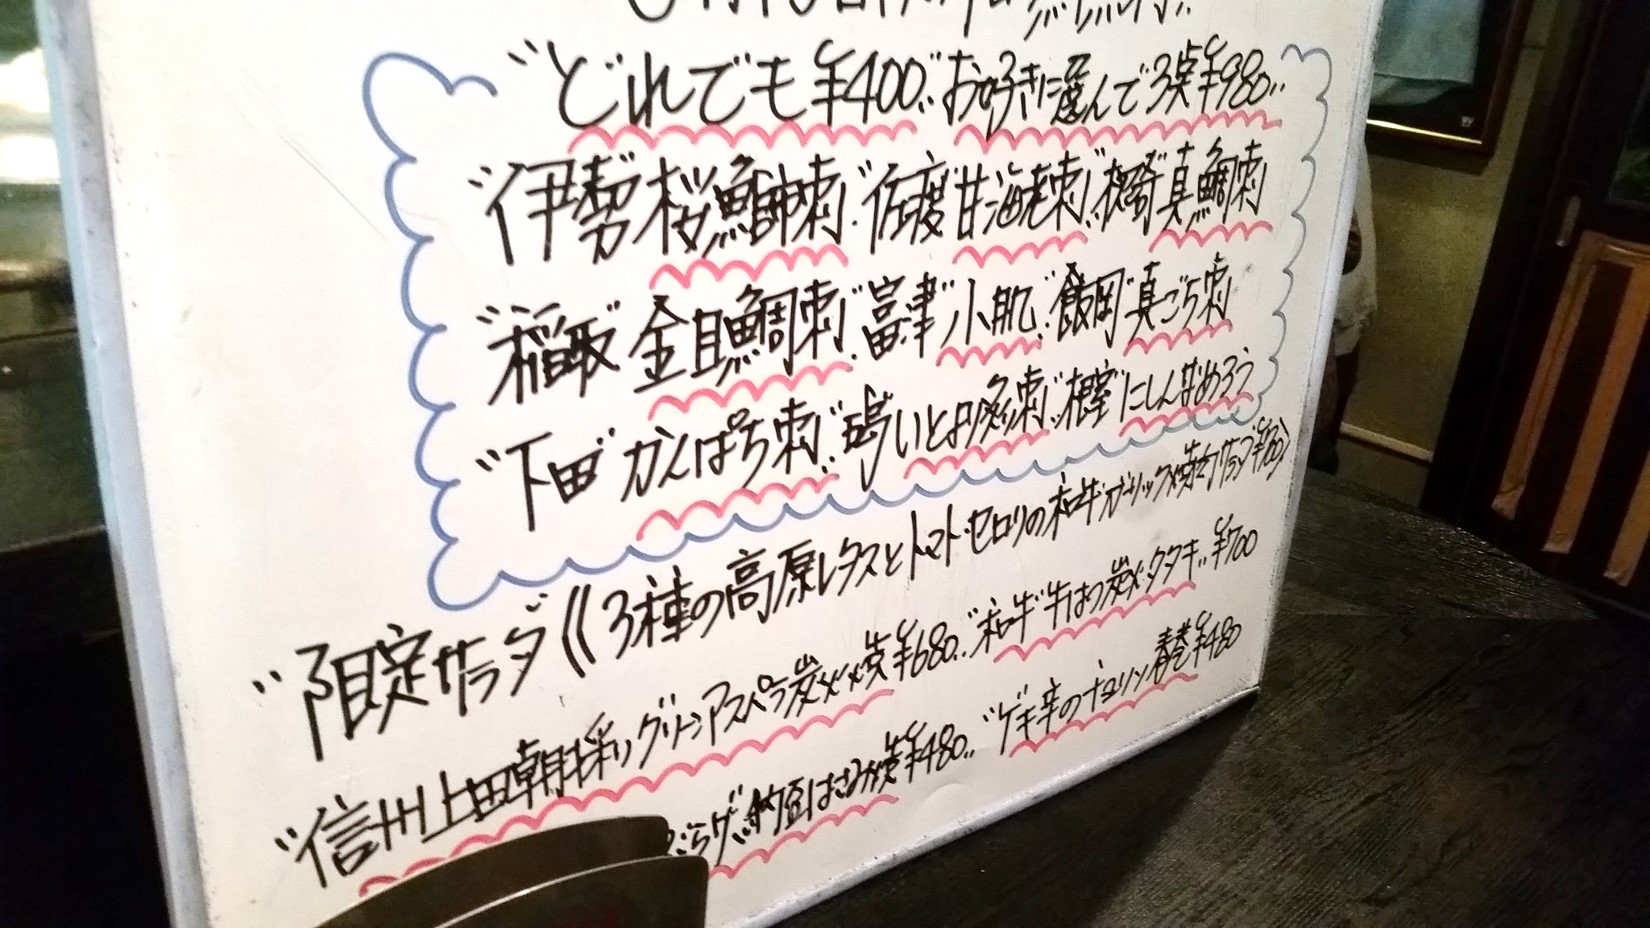 "どれでも¥400" お好きに選んで3点¥980"
"伊勢"桜鰤刺"佐渡"甘海老刺"真鯛刺
"稲取"金目鯛刺"富津"小肌"飯岡"真ごち刺
"下田"かんぱち刺"いとより刺"根室"にしんなめろう
"限定サラダ《3種の高原レタスとトマト・セロリの和牛ガーリックサラダ¥700》
"信州上田朝採りグリーンアスパラ炭火焼¥680"和牛"牛はつ炭火タタキ"¥700
納豆はさみ焼¥480"ゲキ辛のチョリソ春巻¥480